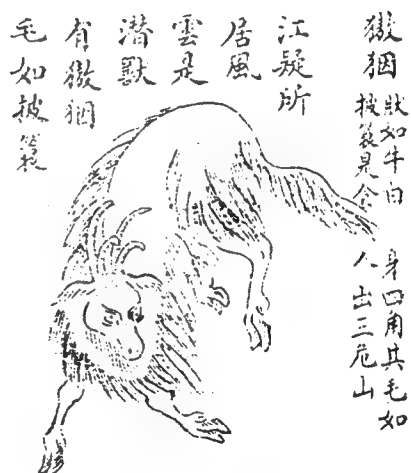 獓𤝱
狀如牛白身四角其毛如
披蓑是食人出三危山
江疑所
居風
雲是
潜獸
有獓𤝱
毛如披蓑